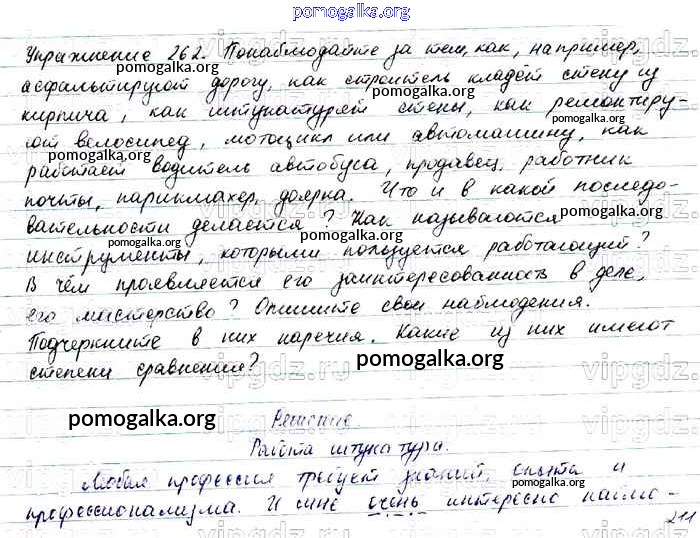 pomogalka.org
Упражнение 262. Понаблюдайте за тем, как, например,
асфальтируют дорогу, как строитель кладёт стену из
pomogalka.org pomogalka.org
кирпича, как штукатурят стены, как ремонтиру-
ют велосипед, мотоцикл или автомашину, как
pomogalka.org
работает водитель автобуса, продавец, работник
pomogalka.org
почты, парикмахер, доярка. Что и в какой последо-
вательности делается? Как называются
pomogalka.org pomogalka.org pomogalka.org
инструменты, которыми пользуется работающий?
В чём проявляется его заинтересованность в деле,
его мастерство? Опишите свои наблюдения.
Подчеркните в них наречия. Какие из них имеют
степени сравнения?
pomogalka.org
pomogalka.org
Решение.
Работа штукатура.
Любая профессия требует знаний, опыта и
pomogalka.org
профессионализма. И мне очень интересно наблю-
211